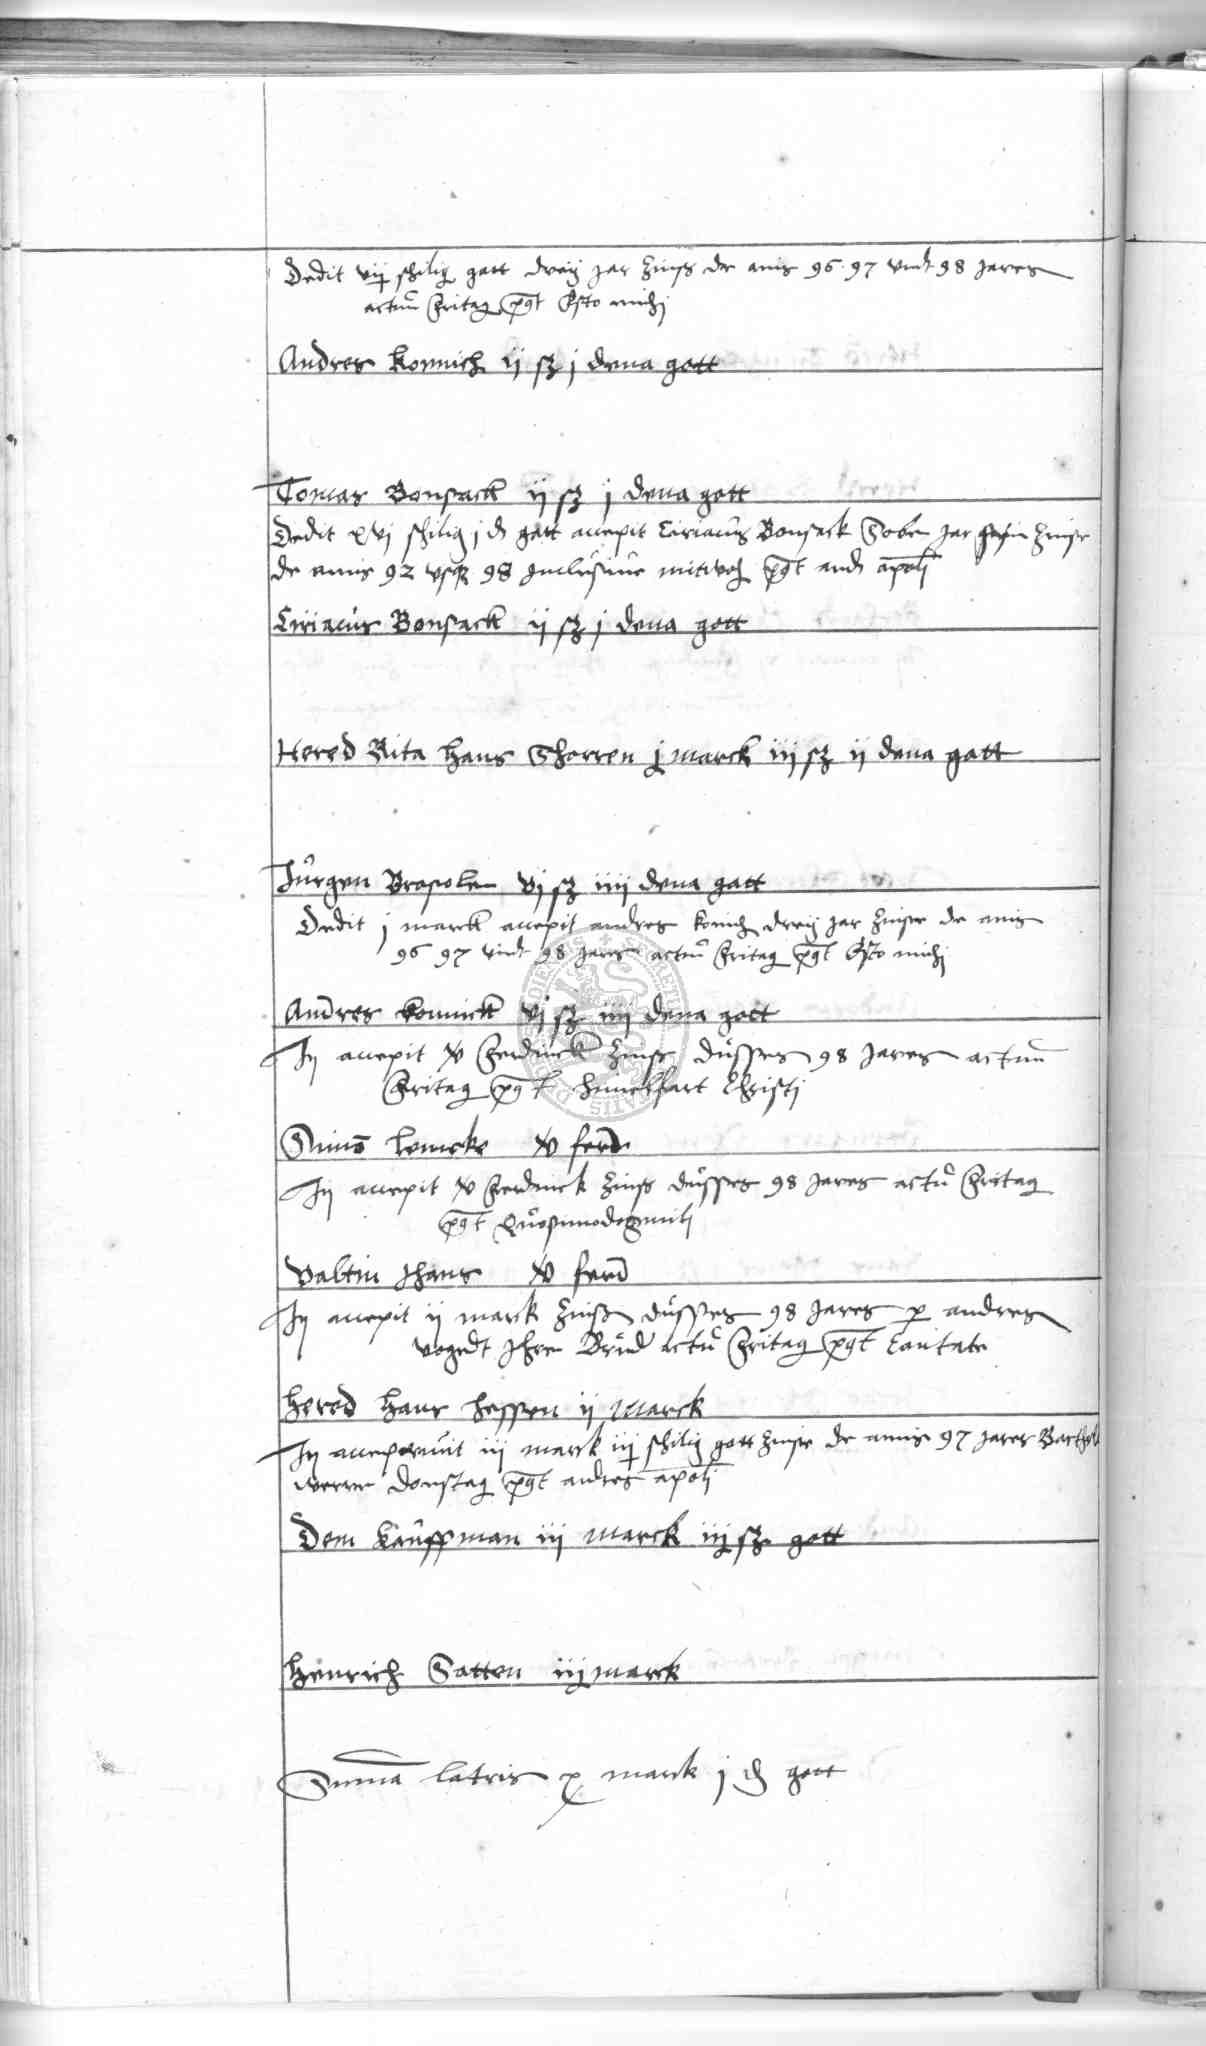 Dedit vij schilig gott dreij jar Zinß de anis 96 · 97 vndt 98 Jares
actum fritag post Esto michi
Andres konnich ij sz j dena gott
Tomas Bonsack ij sz j dena gott
Dedit xvj schilig j d gott accepit Ciriacus Bonsack Sobe Jar Zinse
de anis 92 vsqz 98 Inclusiue mitwoch post apoli
Ciriacus Bonsack ij sz j dena gott
Hered Rita Hans Schorren j marck iij sz ij dena gott
Jurgen Brosolen vj sz iiij dena gott
Dedit j marck accepit andres konich dreij jar Zinse de anis
96 97 vndt 98 jares actum fritag post Esto michi
Andres konnick vj sz iiij dena gott
In accepit xv ferdinck Zinß dusses 98 Jares actum
fritag post himelfart Christi
Simo Lemcke xv ferd
In accepit xv ferdinck Zinß dusses 98 jares actu fritag
post Quasimodogeniti
Valtin Jhans xv ferd
In accepit ij marck Zinß dusses 98 Jares p andres
vogedt Ihre Brud actu fritag post Cantate
Hered Hans Hessen ij Marck
In acceperunt iij marck iij schilig gott Zinse de annis 97 Jares
donstag post andres apoli
Dem kauffman iij Marck iij sz gott
Henrich Satten iij marck
Suma latris x marck j d gott